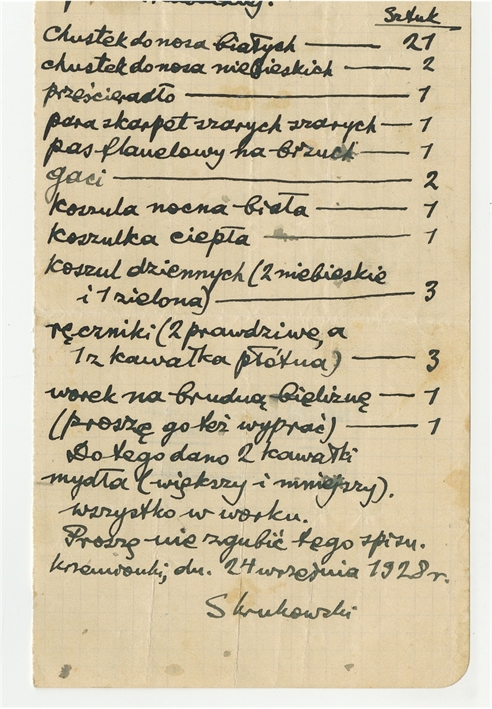 Sztuk
chustek do nosa białych — 21
chustek do nosa niebieskich — 2
prześcieradło — 1
para skarpet szarych szarych — 1
pas flanelowy na brzuch — 1
gaci — 2
koszula nocna biała — 1
koszulka ciepła — 1
koszul dziennych (2 niebieskie
i 1 zielona) — 3
ręczniki (2 prawdziwe, a
1 z kawałka płótna) — 3
worek na brudną bieliznę — 1
(proszę go też wyprać) — 1
Do tego dano 2 kawałki
mydła (większy i mniejszy).
wszystko w worku.
Proszę nie zgubić tego spisu.
dn. 24 września 1928 r.